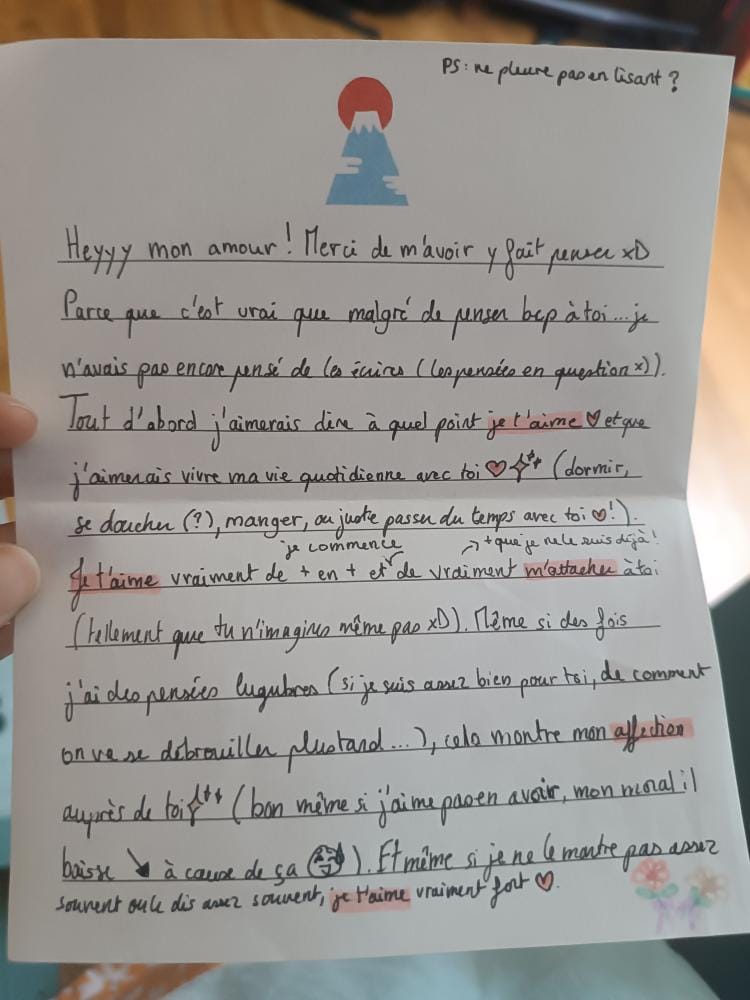 PS : ne pleure pas en lisant ?
Heyyy mon amour ! Merci de m'avoir y fait penser xD
Parce que c'est vrai que malgré de penser bcp à toi... je
n'avais pas encore pensé de les écrires (les pensées en question x)).
Tout d'abord j'aimerais dire à quel point je t'aime ♡ et que
j'aimerais vivre ma vie quotidienne avec toi ♡ (dormir,
se doucher (?), manger, ou juste passer du temps avec toi ♡!).
je commence
→ + que je ne le suis déjà !
Je t'aime vraiment de + en + et de vraiment m'attacher à toi
(tellement que tu n'imagines même pas xD). Même si des fois
j'ai des pensées lugubres (si je suis assez bien pour toi, de comment
on va se débrouiller plus tard...), cela montre mon affection
auprès de toi (bon même si j'aime pas en avoir, mon moral il
baisse ↘ à cause de ça). Et même si je ne le montre pas assez
souvent ou le dis assez souvent, je t'aime vraiment fort ♡.